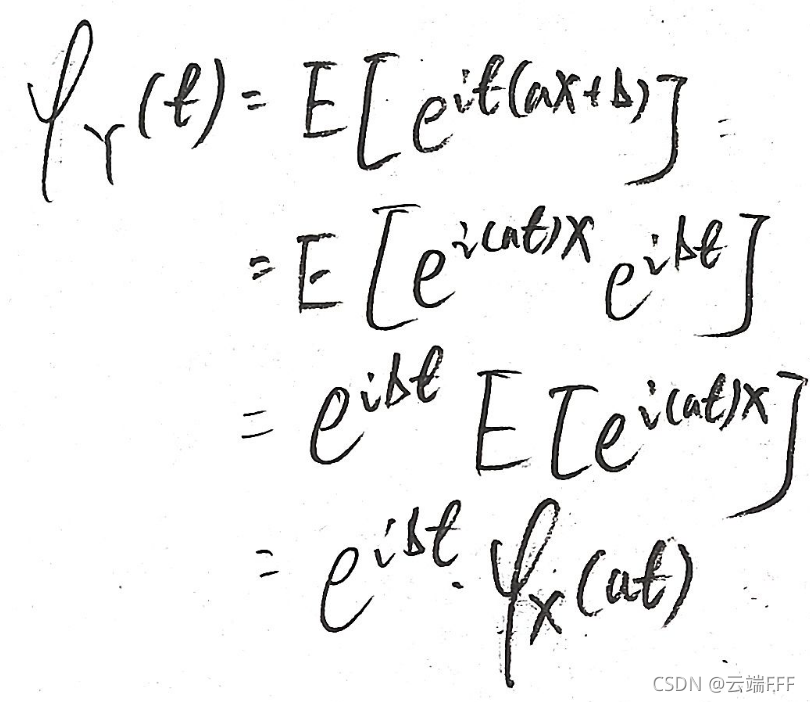 φ_Y(t) = E[e^{it(aX+b)}]
= E[e^{i(at)X} e^{ibt}]
= e^{ibt} E[e^{i(at)X}]
= e^{ibt} · φ_X(at)
CSDN @云端FFF